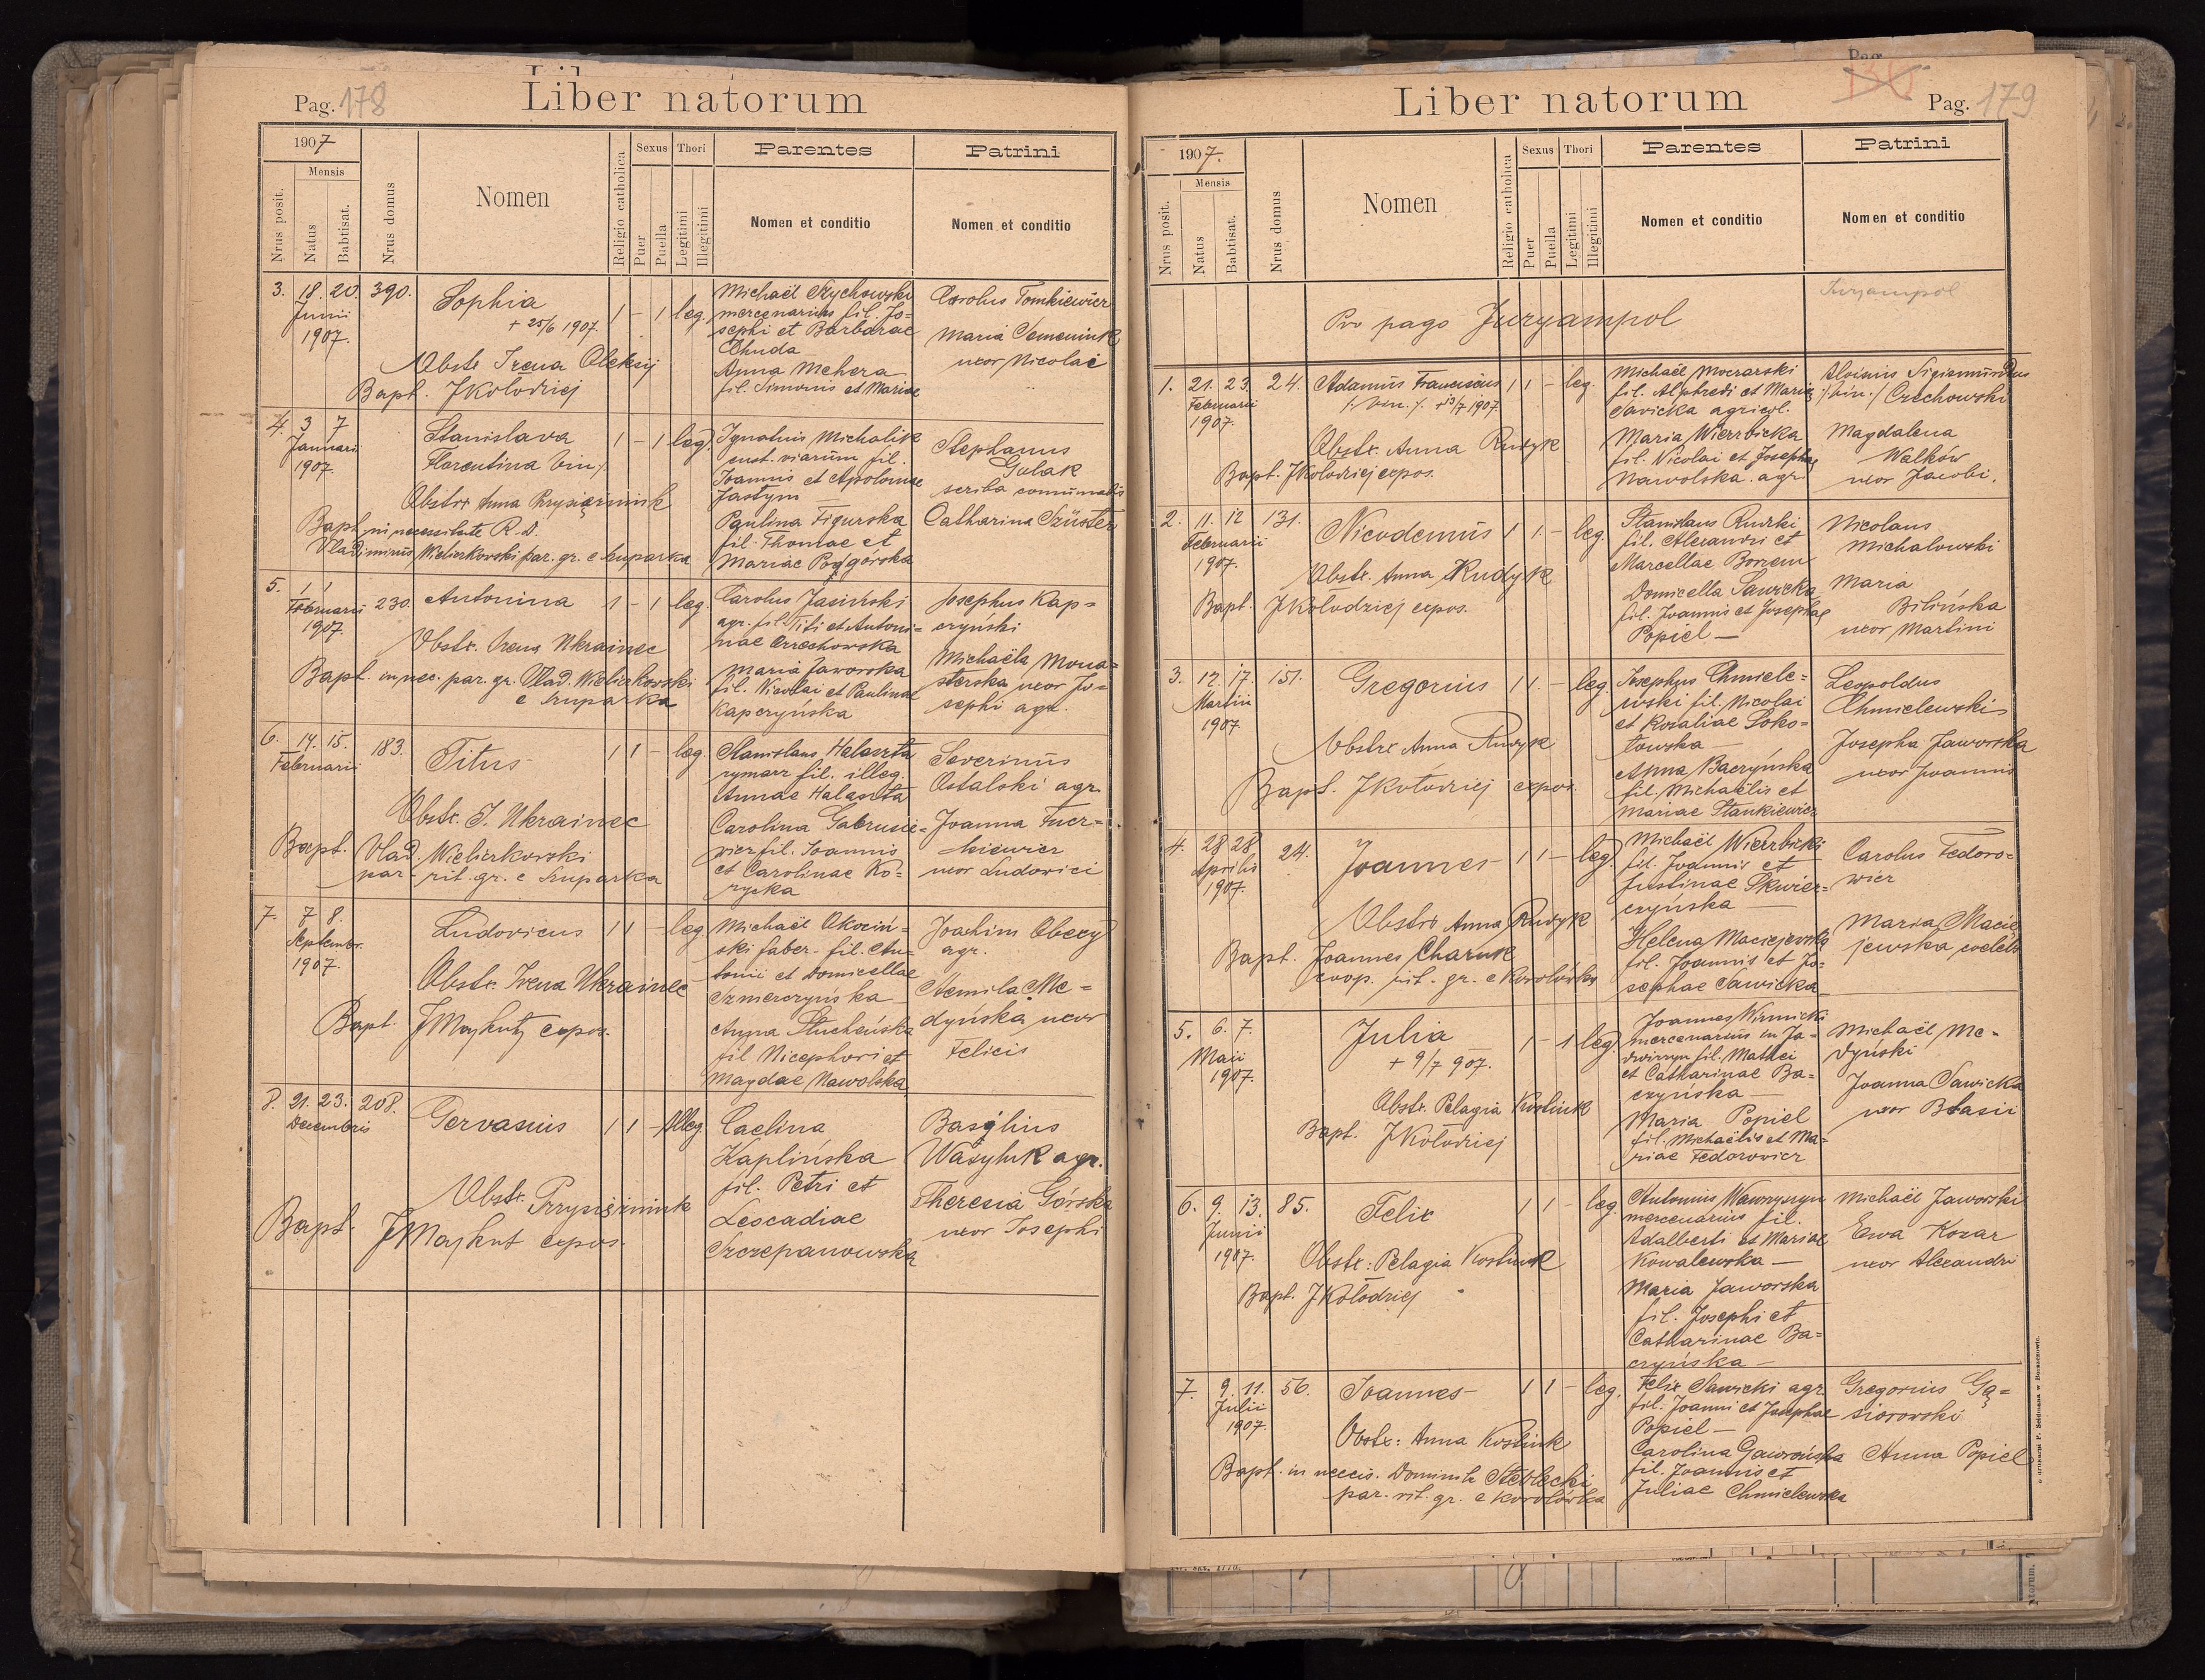 Pag. 178
Liber natorum
1907
Mensis
Nrus posit.
Natus
Babtisat.
Nrus domus
Nomen
Religio catholica
Sexus
Puer
Puella
Thori
Legitimi
Illegitimi
Parentes
Nomen et conditio
Patrini
Nomen et conditio
3. 18. 20. 390. Sophia 1 - 1 leg.
Junii
1907.
+ 25/6 1907.
Obstr. Irena Oleksij
Bapt. JKołodziej
Michaël
mercenarius fil. Jo-
sephi et Barbarae
Chuda
Anna Mehera
fil. Simonis et Mariae
Carolus Tomkiewicz
Maria Semeniuk
uxor Nicolai
4. 3 7 Stanislava 1 - 1 leg.
Januari
1907.
Florentina bin.
Obstr. Anna Przysiężniuk
Bapt. in necessitate R. D.
Vladimirus Wielierkowski par. gr. e Łuparka
Ignatius Michalik
cust. viarum fil.
Joannis et Apoloniae
Jastym
Paulina Figurska
fil. Thomae et
Mariae Podgórska
Stephanus
Gulak
scriba comunalis
Catharina Szuster
5. 1. 1. 230. Antonina 1 - 1 leg.
Februarii
1907.
Obstr. Irena Ukrainec
Bapt. in nec. par. gr. Vlad. Wielierkowski
Carolus Jasiński
agr. fil. Titi et Antoni=
nae Orzechowska
Maria Jaworska
fil. Nicolai et Paulinae
Kapczyńska
Josephus Kap=
czyński
Michaëla Mona=
sterska uxor Jo=
sephi agr.
6. 14. 15. 183. Titus 1 1 - leg.
Februarii
Obstr. I. Ukrainec
Bapt. Vlad. Wielierkowski
par. rit. gr. e
Stanislaus Halaszta
rymarz fil. illeg.
Annae Halaszta
Carolina Gabrusie=
wicz fil. Joannis
et Carolinae Ko=
rycka
Severinus
Ostalski agr.
Joanna
kiewicz
uxor Ludovici
7. 7 8. Ludovicus 1 1 - leg
Septembr.
1907.
Obstr. Irena Ukrainec
Bapt. JMajkut expos.
Michaël Okociń=
ski faber - fil. An=
tonii et Domicellae
Szmerczyńska
Anna Słucheńska
fil. Nicephori et
Magdae Nawolska
Joachim Obecy
agr.
Aemila Me=
dyńska uxor
Felicis
8. 21. 23. 208. Gervasius 1 1 - Illeg
Decembris
Obstr. Przysiężniuk
Bapt. JMajkut expos.
Caelina
Kaplińska
fil. Petri et
Leocadiae
Szczepanowska
Basylius
Wasyluk agr.
Theresia Górska
uxor Josephi
Pag. 179
Liber natorum
1907.
Mensis
Nrus posit.
Natus
Babtisat.
Nrus domus
Nomen
Religio catholica
Sexus
Puer
Puella
Thori
Legitimi
Illegitimi
Parentes
Nomen et conditio
Patrini
Nomen et conditio
Pro pago Juryampol
Juryampol
1. 21. 23. 24. Adamus Franciscus 1 1 - leg.
Februarii
1907.
/: bin. :/ + 13/7 1907.
Obstr. Anna Rudyk
Bapt. JKołodziej expos.
Michaël Moczarski
fil. Alphredi et Mariae
Savicka agricol.
Maria Wierzbicka
fil. Nicolai et Josephae
Nawolska agr
Aloisius Sigismundus
/: bin. :/ Orzechowski
Magdalena
Walków
uxor Jacobi.
2. 11. 12 131. Nicodemus 1 1 - leg.
Februarii
1907.
Obstr. Anna Rudyk
Bapt. JKołodziej expos.
Stanislaus Rudzki
fil. Alexandri et
Marcellae
Domicella Sawicka
fil. Joannis et Josephae
Popiel —
Nicolaus
Michalowski
Maria
Bilińska
uxor Martini
3. 12. 17. 151. Gregorius 1 1. - leg.
Martii
1907.
Obstr. Anna Rudyk
Bapt. JKołodziej expos.
Josephus Chmiele=
wski fil. Nicolai
et Rozaliae Soko=
łowska —
Anna Baczyńska
fil. Michaëlis et
Mariae Stankiewicz
Leopoldus
Chmielewski
Josepha Jaworska
uxor Joannis
4. 28 28 24. Joannes 1 1 - leg.
Aprilis
1907.
Obstr. Anna Rudyk
Bapt. Joannes Charuk
coop. rit. gr. e Korolówka
Michaël Wierzbicki
fil. Joannis et
Justinae Skwier=
czyńska —
Helena Maciejewska
fil. Joannis et Jo=
sephae Sawicka
Carolus Fedoro=
wicz
Maria Macie
jewska coelebs
5. 6. 7. Julia 1 - 1 leg.
Maii
1907.
+ 9/7 907.
Obstr. Pelagia Kostiuk
Bapt. JKołodziej
Joannes
mercenarius in Ja=
fil. Mathei
et Catharinae Ba=
czyńska —
Maria Popiel
fil. Michaëlis et Ma=
riae Fedorowicz
Michaël Me-
dyński
Joanna Sawicka
uxor Blasii
6. 9. 13. 85. Felix 1 1 - leg.
Junii
1907.
Obstr: Pelagia Kostiuk
Bapt. JKołodziej
Antonius Wawryszyn
mercenarius fil.
Adalberti et Mariae
Kowalewska —
Maria Jaworska
fil. Josephi et
Catharinae Ba=
czyńska —
Michaël Jaworski
Ewa Kozar
uxor Alexandri
7. 9. 11. 56. Joannes 1 1 - leg.
Julii
1907.
Obstr: Anna Kostiuk
Bapt. in neccis. Dominik Steblecki
par. rit. gr. e Korolówka
Felix Sawicki agr.
fil. Joanni et Josephae
Popiel —
Carolina Gaworońska
fil. Joannis et
Juliae Chmielewska
Gregorius Gą=
siorowski
Anna Popiel